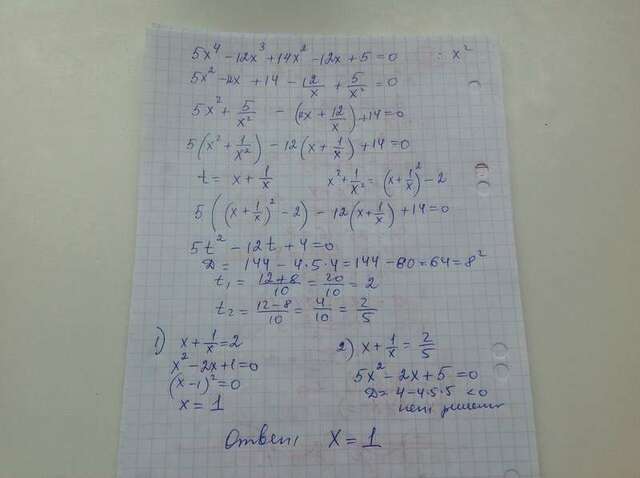 5x⁴ - 12x³ + 14x² - 12x + 5 = 0 : x²
5x² - 12x + 14 - 12/x + 5/x² = 0
5x² + 5/x² - (12x + 12/x) + 14 = 0
5(x² + 1/x²) - 12(x + 1/x) + 14 = 0
t = x + 1/x x² + 1/x² = (x + 1/x)² - 2
5((x + 1/x)² - 2) - 12(x + 1/x) + 14 = 0
5t² - 12t + 4 = 0
D = 144 - 4·5·4 = 144 - 80 = 64 = 8²
t₁ = (12+8)/10 = 20/10 = 2
t₂ = (12-8)/10 = 4/10 = 2/5
1) x + 1/x = 2
x² - 2x + 1 = 0
(x - 1)² = 0
x = 1
2) x + 1/x = 2/5
5x² - 2x + 5 = 0
D = 4 - 4·5·5 < 0
нет решений
Ответ: x = 1